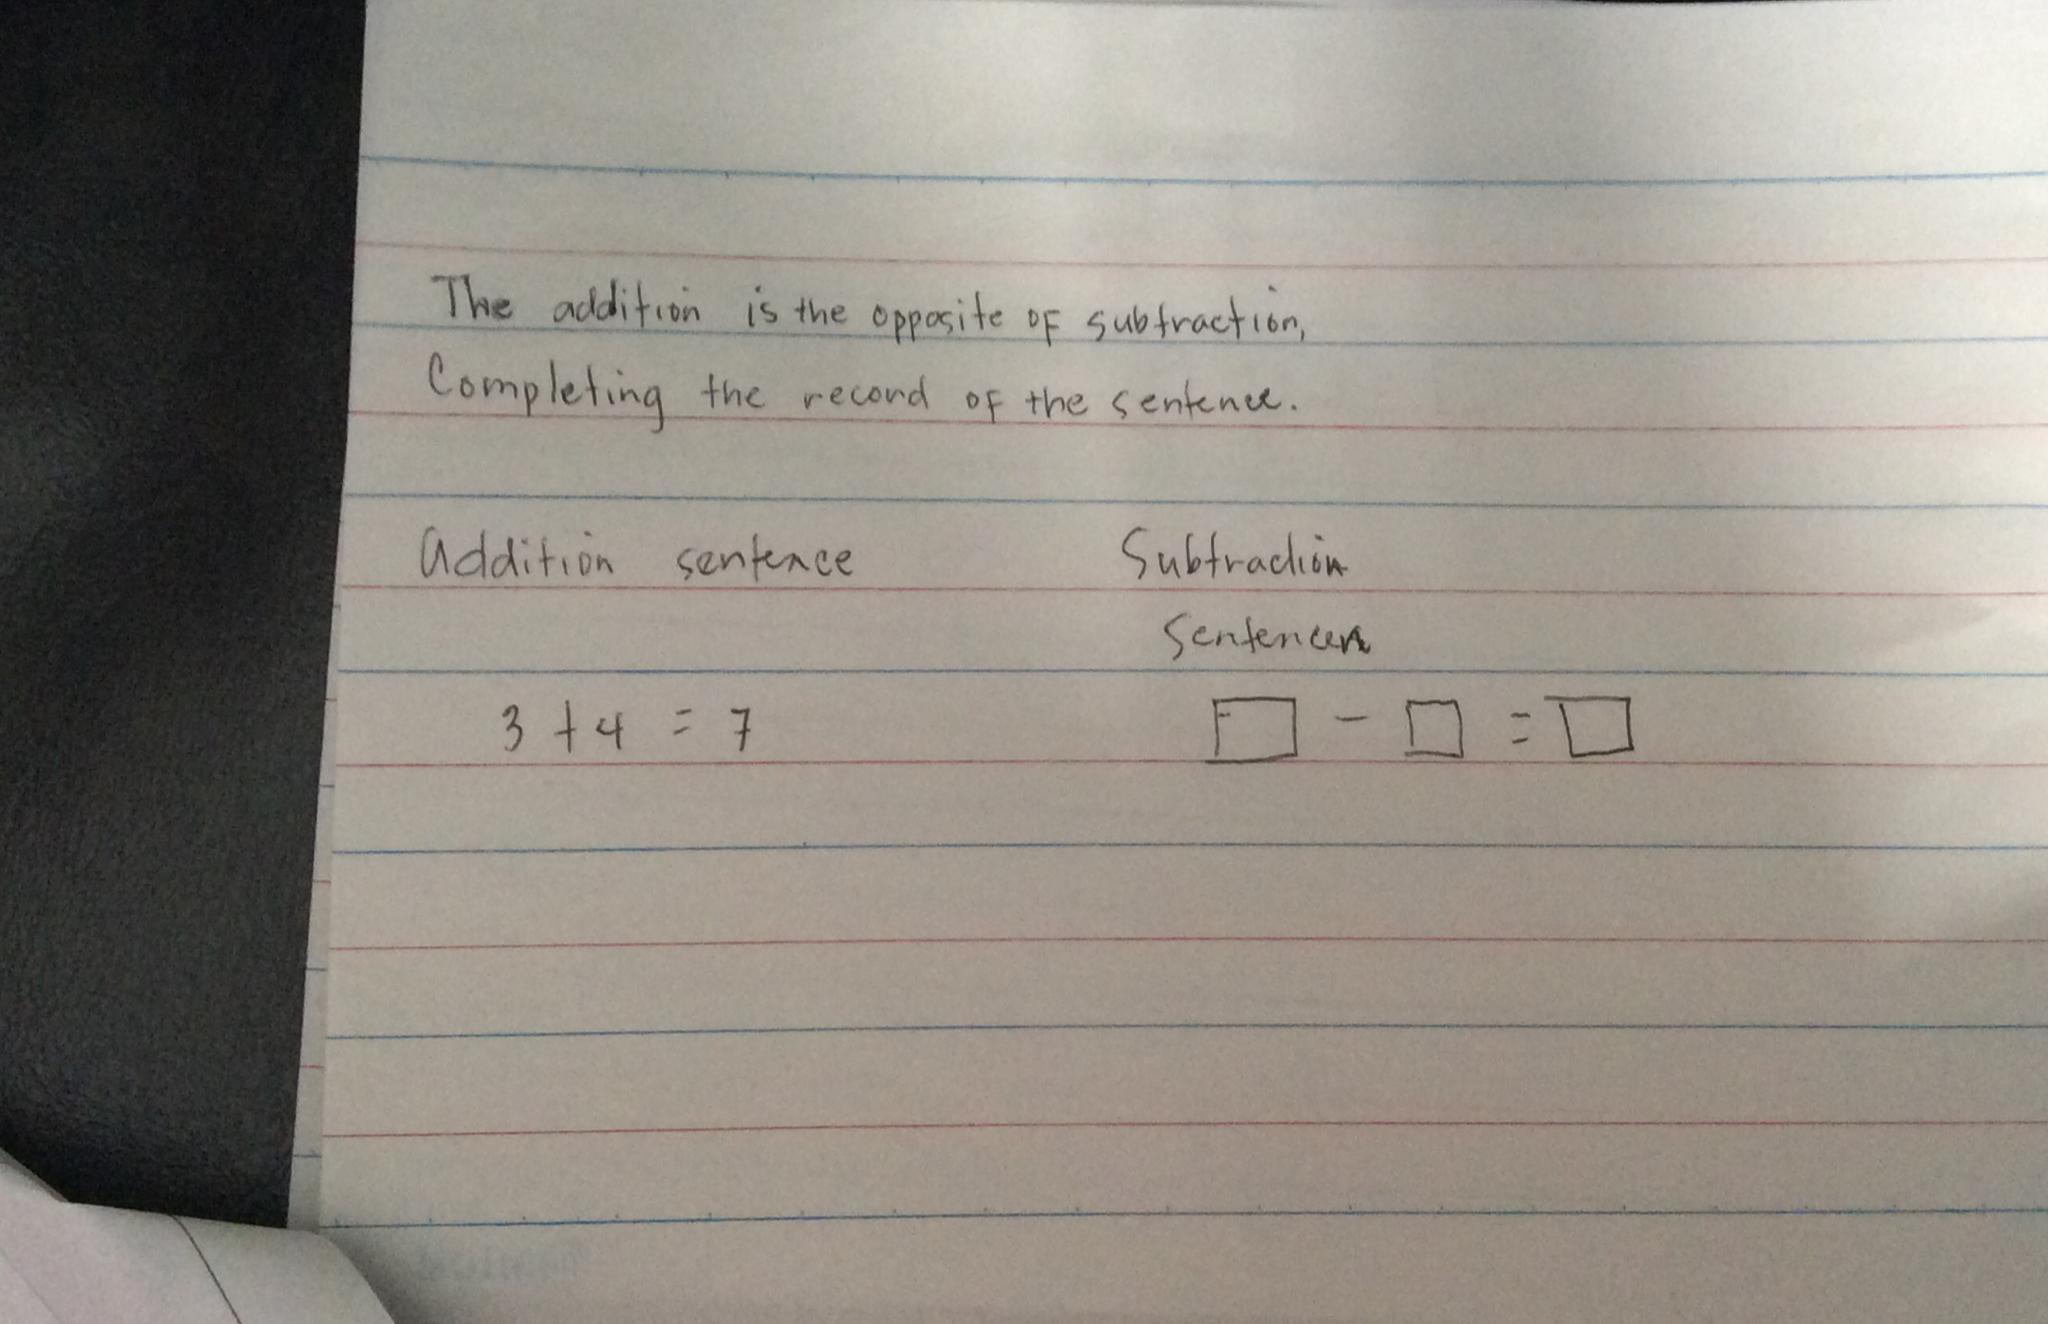 The addition is the opposite of subtraction,
Completing the record of the sentence.
Addition sentence
Subtraction
Sentences
3 + 4 = 7
□ - □ = □